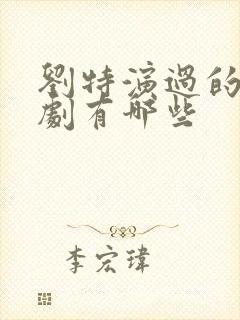 劉特演過的
劇有哪些
李宏瑋